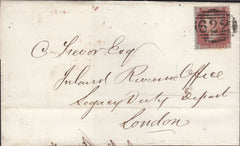 C. Trevor Esq
Inland Revenue Office
Legacy Duty Depart
London